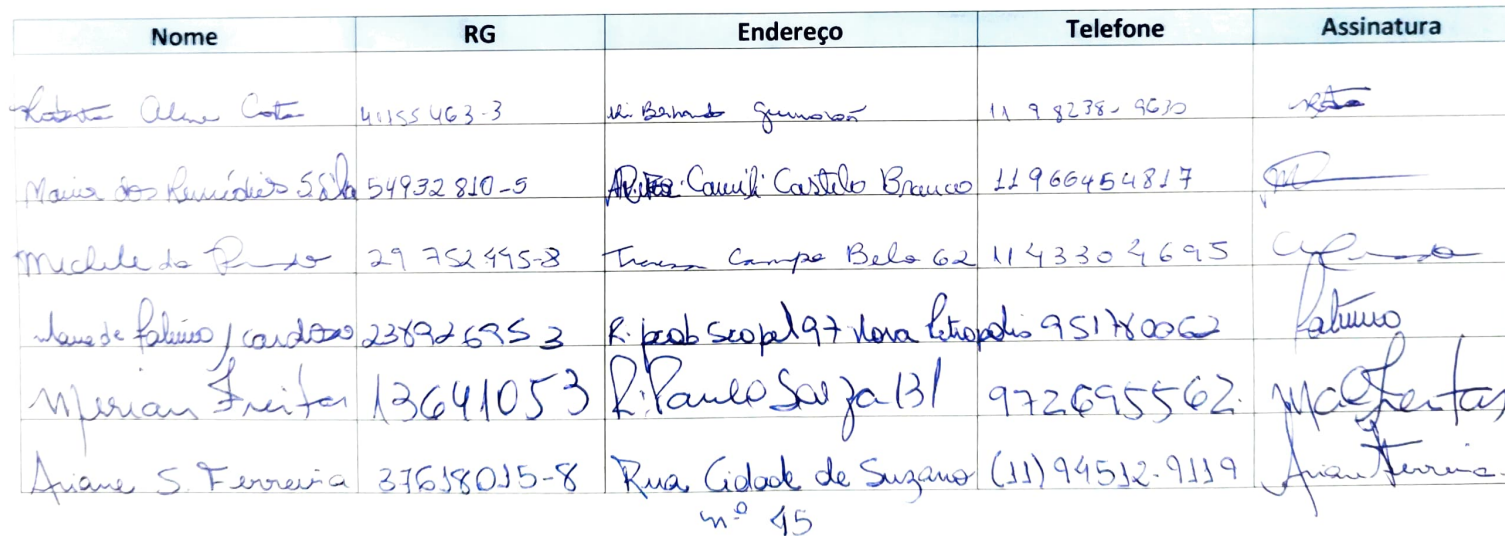 Nome RG Endereço Telefone Assinatura
Roberta Aline Costa 41155463-3 Bernardo 11 98238-9630
Maria dos Remédios S Silva 54932810-5 Camili Castelo Branco 11966454817
Michele do 29 752 495-8 Campo Belo 62 11 4330 4695
de Fatima J cardozo 238926953 R. jacob scopel 97 Nova Petropolis 951780062 Fatima
Mirian Freitas 13641053 R. Paulo Souza 131 972695562. Freitas
Ariane S. Ferreira 37618015-8 Rua Cidade de Suzano (11) 94512-9119 Ariane Ferreira.
nº 45